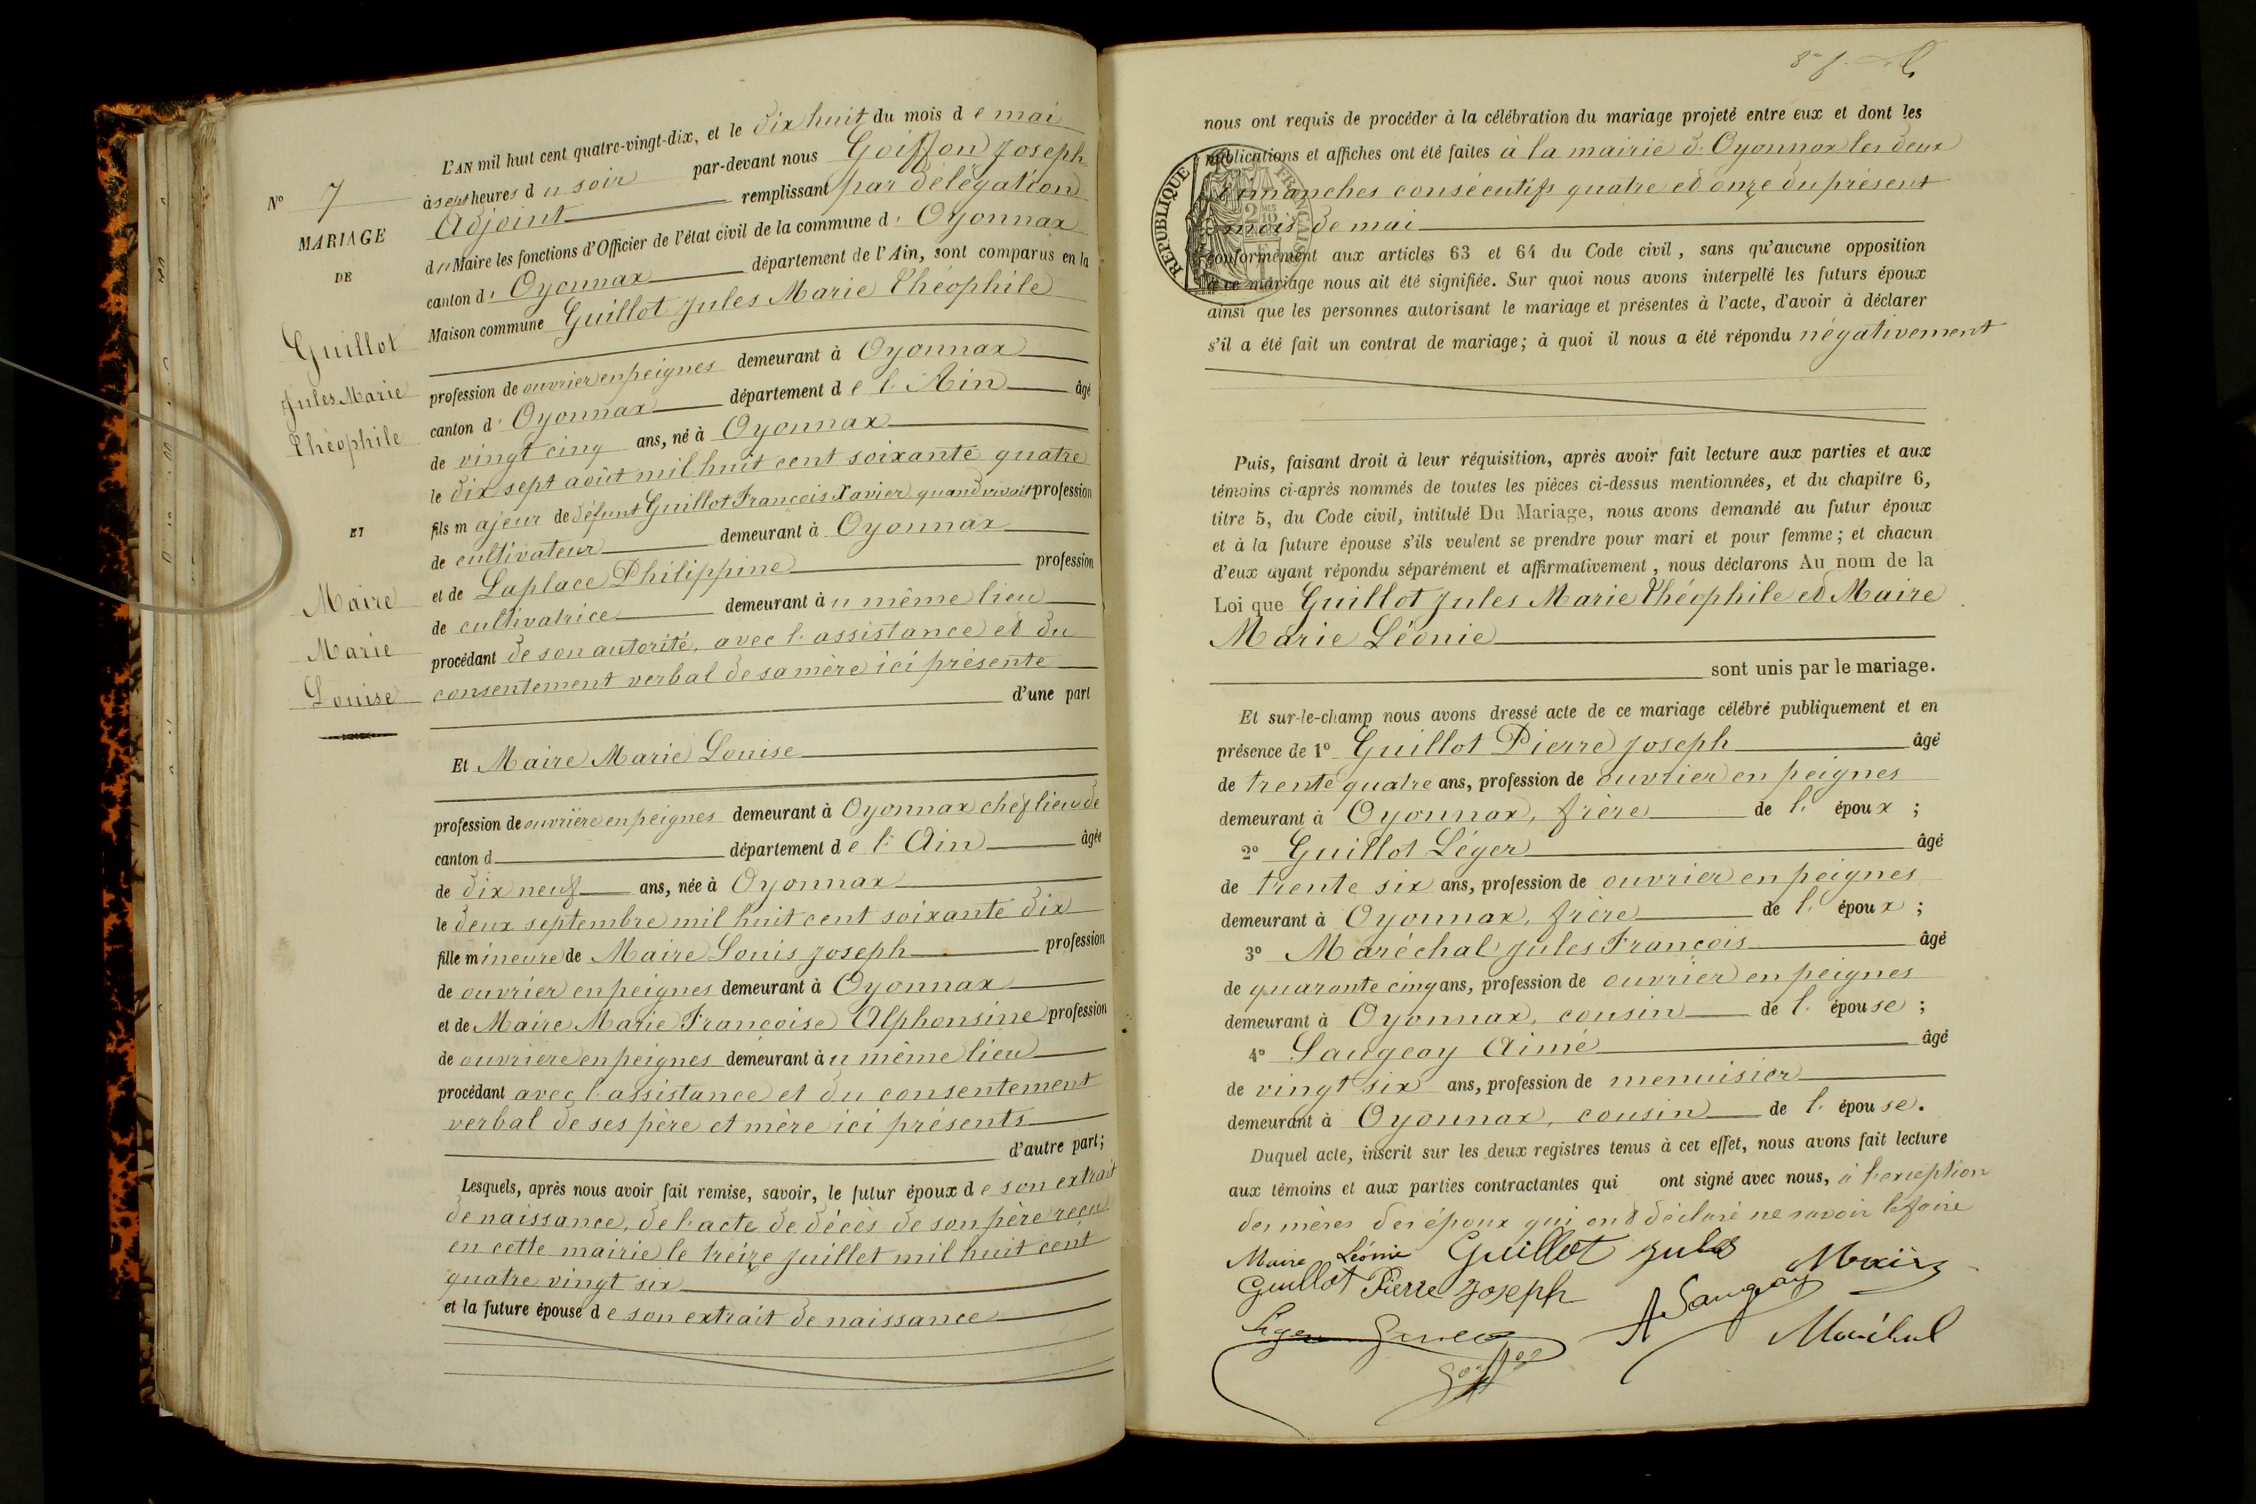 N° 7
MARIAGE
DE
Guillot
Jules Marie
Théophile
ET
Maire
Marie
Louise
L'AN mil huit cent quatre-vingt-dix, et le dix huit du mois de mai
à sept heures du soir par-devant nous Goiffon Joseph
Adjoint remplissant par délégation
du Maire les fonctions d'Officier de l'état civil de la commune d' Oyonnax
canton d' Oyonnax département de l'Ain, sont comparus en la
Maison commune Guillot Jules Marie Théophile
profession de ouvrier en peignes demeurant à Oyonnax
canton d' Oyonnax département de l'Ain âgé
de vingt cinq ans, né à Oyonnax
le dix sept août mil huit cent soixante quatre
fils majeur de défunt Guillot François Xavier quand vivait profession
de cultivateur demeurant à Oyonnax
et de Laplace Philippine profession
de cultivatrice demeurant àu même lieu
procédant de son autorité, avec l'assistance et du
consentement verbal de sa mère ici présente
d'une part
Et Maire Marie Louise
profession de ouvrière en peignes demeurant à Oyonnax chef lieu de
canton d département de l'Ain âgée
de dix neuf ans, née à Oyonnax
le deux septembre mil huit cent soixante dix
fille mineure de Maire Louis Joseph profession
de ouvrier en peignes demeurant à Oyonnax
et de Maire Marie Françoise Alphonsine profession
de ouvrière en peignes demeurant àu même lieu
procédant avec l'assistance et du consentement
verbal de ses père et mère ici présents
d'autre part;
Lesquels, après nous avoir fait remise, savoir, le futur époux de son extrait
de naissance, de l'acte de décès de son père reçu
en cette mairie le treize juillet mil huit cent
quatre vingt six
et la future épouse de son extrait de naissance
nous ont requis de procéder à la célébration du mariage projeté entre eux et dont les
publications et affiches ont été faites à la mairie d'Oyonnax les deux
dimanches consécutifs quatre et onze du présent
mois de mai
REPUBLIQUE FRANÇAISE
conformément aux articles 63 et 64 du Code civil, sans qu'aucune opposition
à ce mariage nous ait été signifiée. Sur quoi nous avons interpellé les futurs époux
ainsi que les personnes autorisant le mariage et présentes à l'acte, d'avoir à déclarer
s'il a été fait un contrat de mariage; à quoi il nous a été répondu négativement
Puis, faisant droit à leur réquisition, après avoir fait lecture aux parties et aux
témoins ci-après nommés de toutes les pièces ci-dessus mentionnées, et du chapitre 6,
titre 5, du Code civil, intitulé Du Mariage, nous avons demandé au futur époux
et à la future épouse s'ils veulent se prendre pour mari et pour femme; et chacun
d'eux ayant répondu séparément et affirmativement, nous déclarons Au nom de la
Loi que Guillot Jules Marie Théophile et Maire
Marie Léonie
sont unis par le mariage.
Et sur-le-champ nous avons dressé acte de ce mariage célébré publiquement et en
présence de 1° Guillot Pierre Joseph âgé
de trente quatre ans, profession de ouvrier en peignes
demeurant à Oyonnax, frère de l'époux;
2° Guillot Léger âgé
de trente six ans, profession de ouvrier en peignes
demeurant à Oyonnax, frère de l'époux;
3° Maréchal Jules François âgé
de quarante cinq ans, profession de ouvrier en peignes
demeurant à Oyonnax, cousin de l'épouse;
4° Saugeay Aimé âgé
de vingt six ans, profession de menuisier
demeurant à Oyonnax, cousin de l'épouse.
Duquel acte, inscrit sur les deux registres tenus à cet effet, nous avons fait lecture
aux témoins et aux parties contractantes qui ont signé avec nous, à l'exception
des mères des époux qui ont déclaré ne savoir le faire
Maire Léonie Guillot Jules Maire
Guillot Pierre Joseph A Saugeay
Maréchal
Goiffon